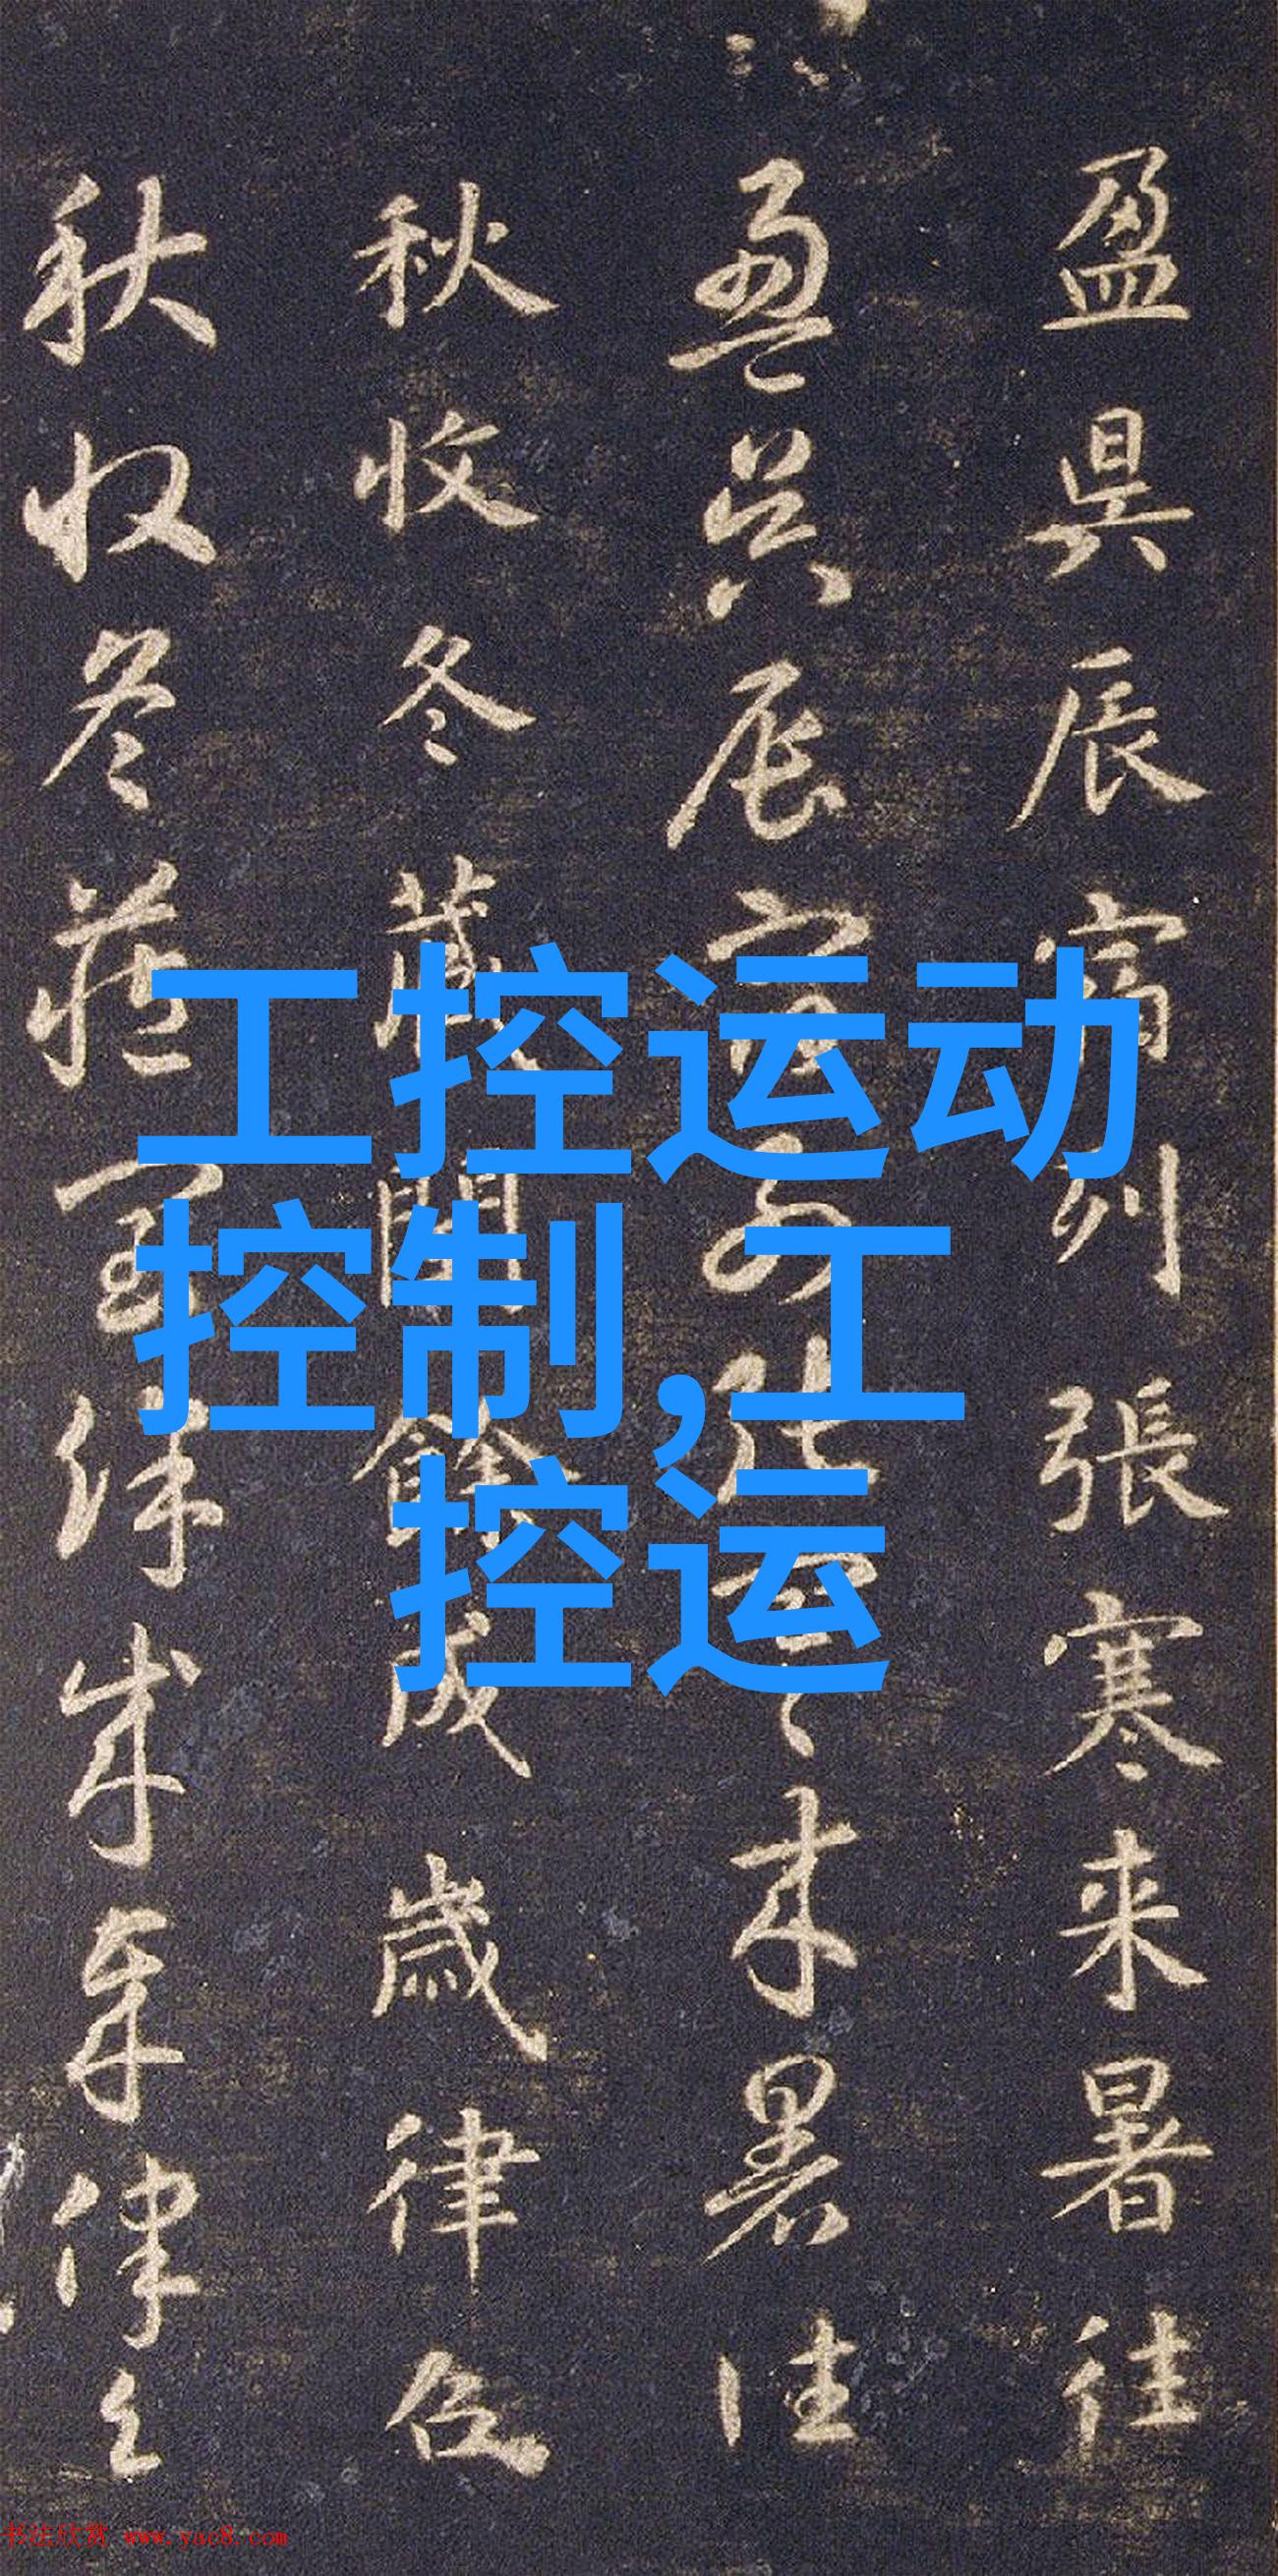 盈昃辰宿列張寒来暑往
盈昃辰宿列張寒来暑往
秋收冬蔵閏餘成歳律呂
秋收冬蔵閏餘成歳律呂
工控运动
控制,工
控运
书法欣赏 www.yac8.com